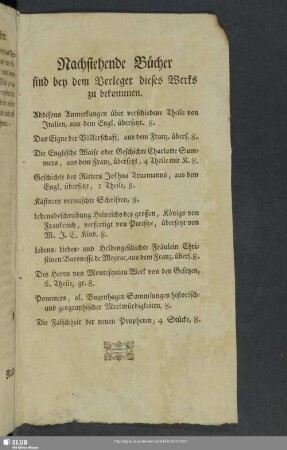 Nachstehende Bücher
sind bey dem Verleger dieses Werks
zu bekommen.
Addisons Anmerkungen über verschiedene Theile von
Italien, aus dem Engl. übersetzt. 8.
Das Eigne der Völkerschaft, aus dem Franz. übers. 8.
Die Englische Waise oder Geschichte Charlotte Sum-
mers, aus dem Franz. übersetzt, 4 Theile mit K. 8.
Geschichte des Ritters Joshua Truemanns, aus dem
Engl. übersetzt, 2 Theile, 8.
Kästners vermischte Schriften, 8.
Lebensbeschreibung Heinrichs des grossen, Königs von
Frankreich, verfertigt von Perefixe, übersetzt von
M. J. C. Kind, 8.
Lebens- Liebes- und Heldengeschichte Fräulein Chri-
stinen Baronesse de Meyrac, aus dem Franz. übers. 8.
Des Herrn von Montesquiou Werk von den Gesetzen,
6. Theile, gr. 8.
Pommers, al. Bugenhagen Sammlungen historisch-
und geographischer Merkwürdigkeiten, 8.
Die Falschheit der neuen Propheten, 4 Stücke, 8.
SLUB